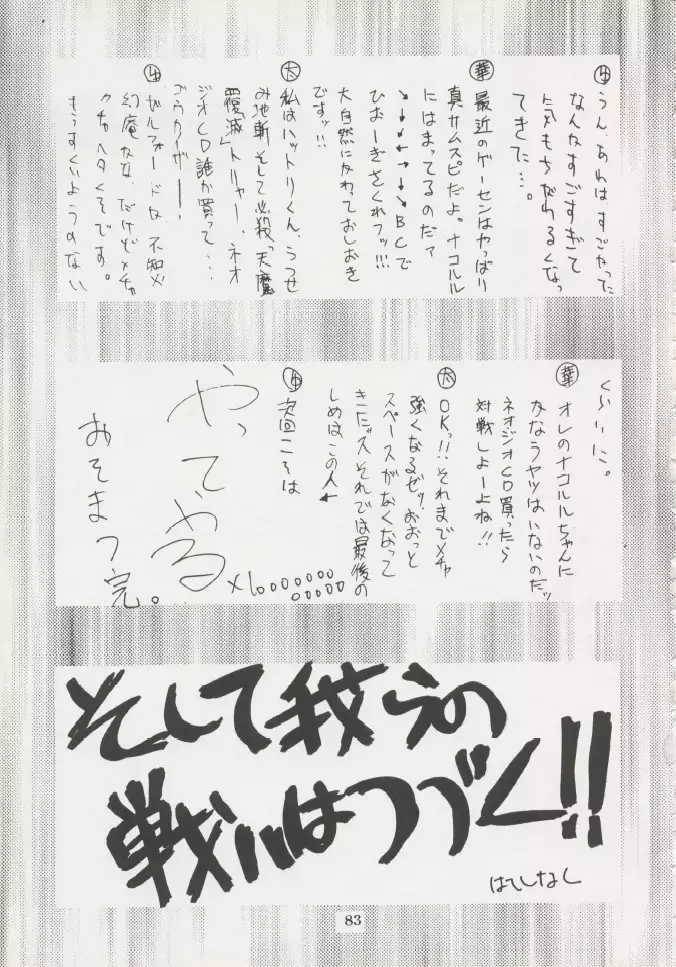 うん、あれはすごかった
なんかすごすぎて
気もちがわるくなっ
てきた…。
華 最近のゲーセンはやっぱり
真サムスピだよ。ナコルル
にはまってるのだァ
↘→↓↙←→↓↘BCで
ひおーぎざくれフッ!!!
大自然にかわっておしおき
ですッ!!
太 私はハットリくん、うつせ
み地斬そして必殺っ「天魔
覆滅」トリャー、ネオ
ジオCD誰か買って・・・
ゴウカイザー――!
ガルフォードか不知火
幻庵かな、だけどメチャ
クチャヘタくそです。
もうすくいようのない
くらいに。
華 オレのナコルルちゃんに
かなうヤツはいないのだッ
ネオジオCD買ったら
対戦しよーよね!!
太 OKっ!!それまでメチャ
強くなるゼッ、おおっと
スペースがなくなって
きたッスそれでは最後の
しめはこの人←
次回こそは
やってやる
×1000000000000
おそまつ完。
そして我らの
戦いはつづく!!
はてしなし
83